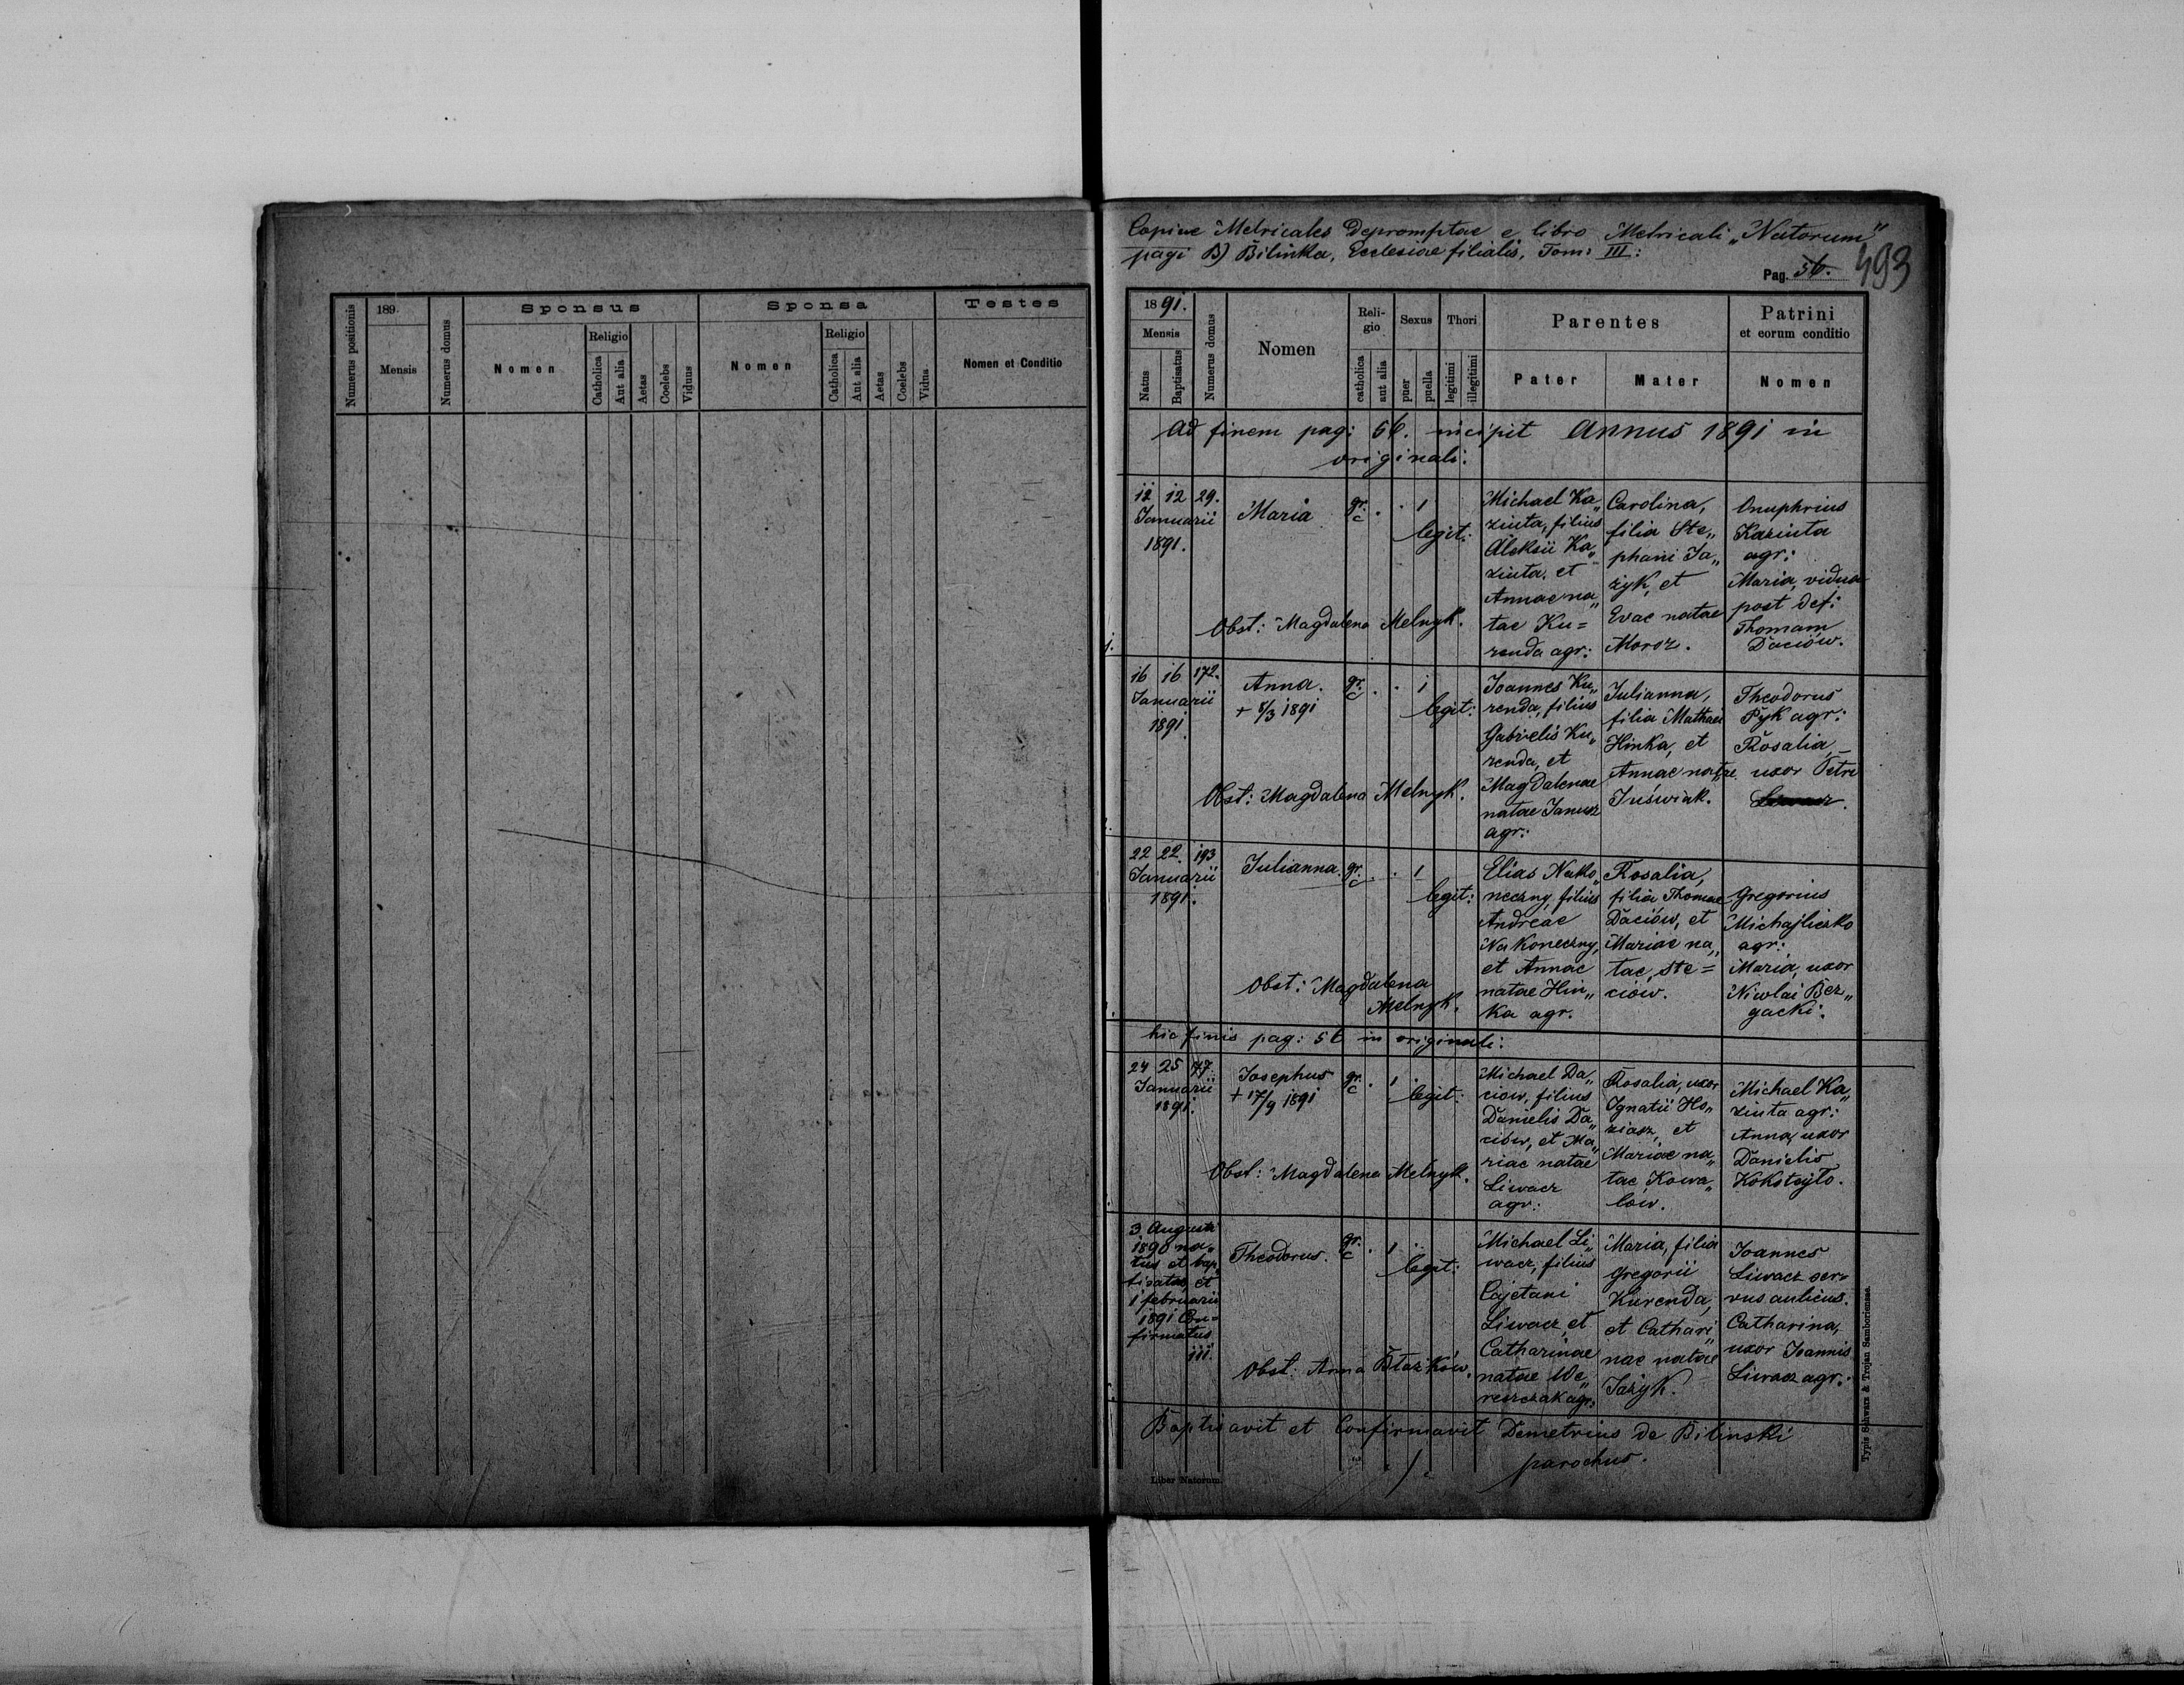 189
Numerus positionis
Mensis
Numerus domus
Sponsus
Nomen
Religio
Catholica
Aut alia
Aetas
Coelebs
Viduus
Sponsa
Nomen
Religio
Catholica
Aut alia
Aetas
Coelebs
Vidua
Testes
Nomen et Conditio
Copiae Metricales Depromptae e libro Metricali „Natorum"
pagi B) Bilinka, Ecclesiae filialis, Tom: III:
Pag. 56. 493
1891.
Mensis
Natus
Baptisatus
Numerus domus
Nomen
Reli-
gio
catholica
aut alia
Sexus
puer
puella
Thori
legitimi
illegitimi
Parentes
Pater
Mater
Patrini
et eorum conditio
Nomen
Ad finem pag: 56. incipit Annus 1891 in
originali:
12 12 29.
Januarii
1891.
Maria
gr.
c
. . 1
legit:
Michael Ka„
ziuta, filius
Aleksii Ka„
ziuta, et
Annae na„
tae Ku=
renda agr:
Carolina,
filia Ste„
phani Ja„
żyk, et
Evae natae
Moroz.
Onuphrius
Kaziuta
agr:
Maria, vidua
post def:
Thomam
Daciów.
Obst: Magdalena Melnyk.
1.
16 16 172.
Januarii
1891.
Anna.
+ 8/3 1891
gr.
c
. . 1
legit:
Joannes Ku„
renda, filius
Gabrielis Ku„
renda, et
Magdalenae
natae Janusz
agr:
Julianna,
filia Mathaei
Hinka, et
Annae natae
Juświak.
Theodorus
Pyk agr:
Rosalia,
uxor Petri
Obst: Magdalena Melnyk.
22 22. 193
Januarii
1891.
Julianna.
gr.
c
. . 1
legit:
Elias Nako„
neczny, filius
Andreae
Nakoneczny,
et Annae
natae Hin„
ka agr.
Rosalia,
filia Thomae
Daciów, et
Mariae na„
tae, Ste=
ciów.
Gregorius
Michajliczko
agr:
Maria, uxor
Nicolai Bez„
gacki.
Obst: Magdalena
Melnyk.
hic finis pag: 56 in originali:
24 25 77.
Januarii
1891.
Josephus
+ 17/9 1891
gr.
c
. 1 .
legit:
Michael Da„
ciów, filius
Danielis Da„
ciów, et Ma„
riae natae
Liwacz
agr:
Rosalia, uxor
Ignatii Ho„
ziasz, et
Mariae na„
tae Kowa„
lów.
Michael Ka„
ziuta agr:
Anna, uxor
Danielis
Obst: Magdalena Melnyk.
3. Augusti
1890 na„
tus et bap„
tisatus, et
1 februarii
1891 Con=
firmatus
111.
Theodorus.
gr.
c
. 1 .
legit:
Michael Li„
wacz, filius
Cajetani
Liwacz, et
Catharinae
natae We„
reszczak agr:
Maria, filia
Gregorii
Kurenda,
et Cathari„
nae natae
Jażyk.
Joannes
Liwacz ser„
vus aulicus.
Catharina,
uxor Joannis
Liwacz agr:
Obst: Anna Błażków.
Baptisavit et Confirmavit Demetrius de Bilinski
parochus.
Liber Natorum.
Typis Schwarz & Trojan Samboriensae.